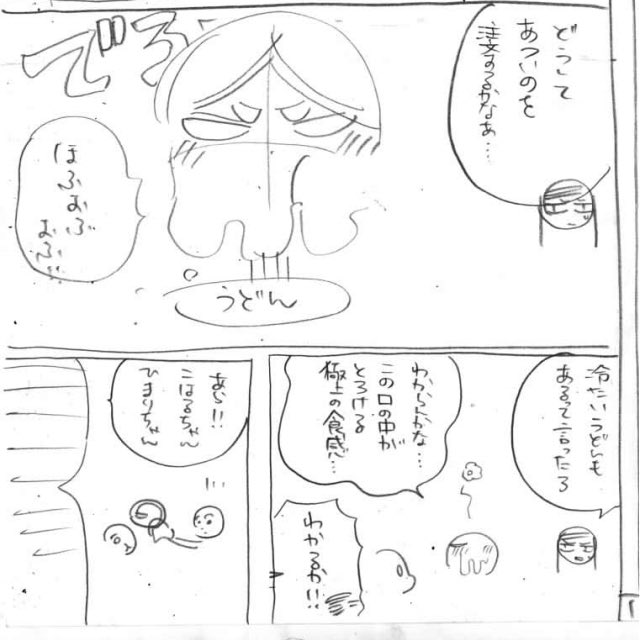 どうして
あついのを
注文するかなあ…
でろ
ほふおぶ
おふ…
うどん
冷たいうどんも
あるって言ったろ
わからんかな…
この口の中が
とろける
極上の食感…
わかるか!!
あら!!
こはるちゃん
ひまりちゃん
1